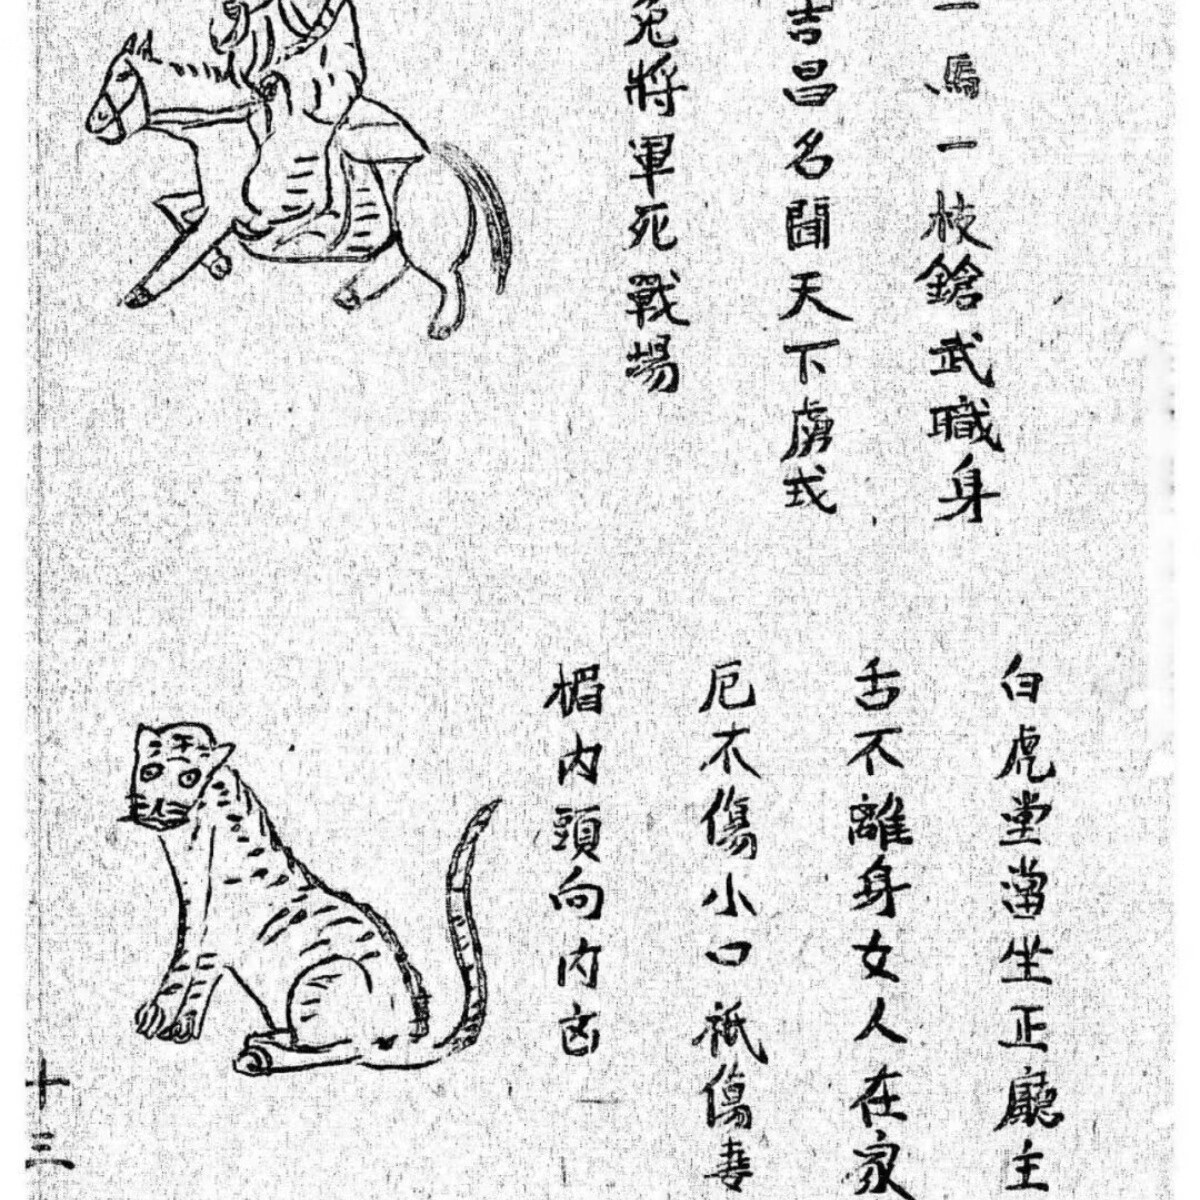 一馬一枝鎗武職身
吉昌名聞天下虜
免將軍死戰場
白虎堂當坐正廳主
舌不離身女人在家
厄不傷小口祇傷妻
楣内頭向内凶
十三